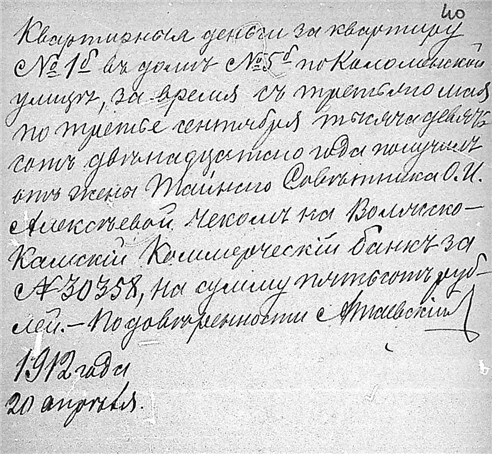 40
Квартирныя деньги за квартиру
№ 1б въ домѣ № 5б по Коломенской
улицѣ, за время съ третьяго мая
по третье сентября тысяча девять
сотъ двѣнадцатаго года получилъ
отъ жены Тайнаго Совѣтника О.И.
Алексѣевой чекомъ на Волжско-
Камскій Коммерческій банкъ за
№ 30358, на сумму пятьсотъ руб-
лей. – По довѣренности
1912 года
20 апрѣля.